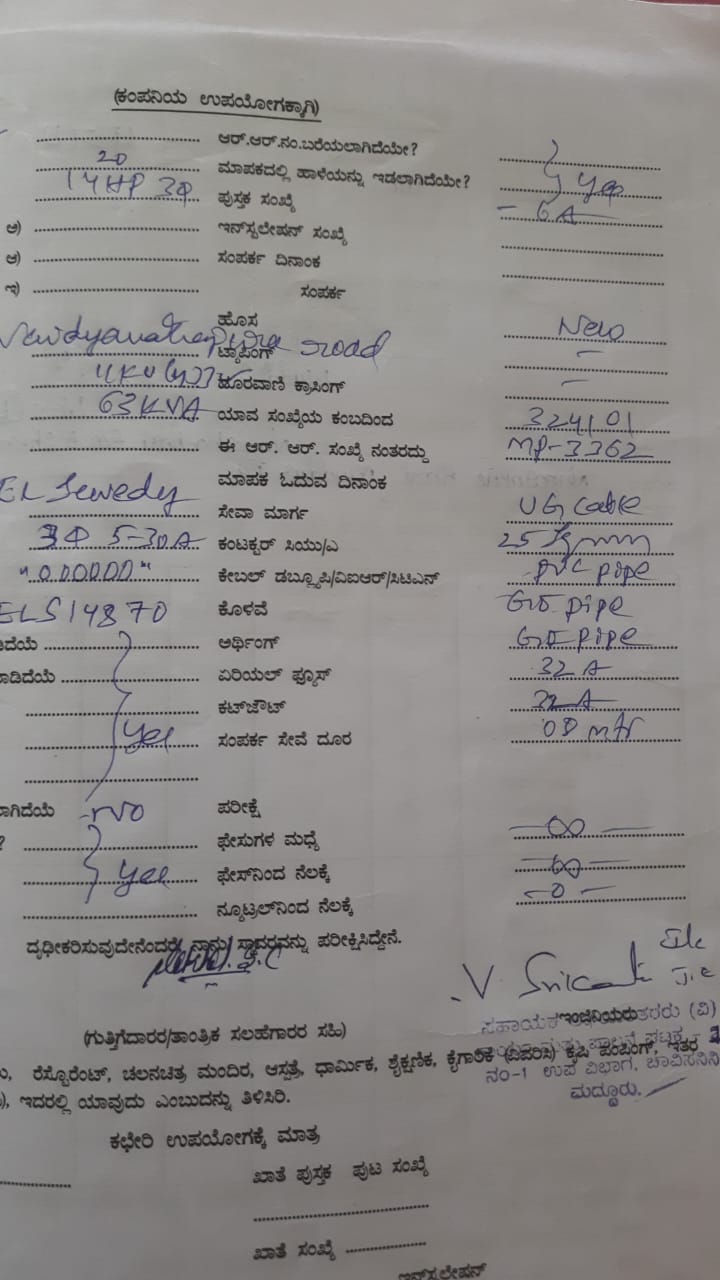 (ಕಂಪನಿಯ ಉಪಯೋಗಕ್ಕಾಗಿ)
ಆರ್.ಆರ್.ನಂ.ಬರೆಯಲಾಗಿದೆಯೇ?
20 ಮಾಪಕದಲ್ಲಿ ಹಾಳೆಯನ್ನು ಇಡಲಾಗಿದೆಯೇ? yes
14HP 3Φ ಪುಸ್ತಕ ಸಂಖ್ಯೆ - 6A
ಅ) ಇನ್‌ಸ್ಟಲೇಷನ್ ಸಂಖ್ಯೆ
ಆ) ಸಂಪರ್ಕ ದಿನಾಂಕ
ಇ) ಸಂಪರ್ಕ
ಹೊಸ New
Vaidyanathapura road ಟ್ಯಾಪಿಂಗ್ -
11KV ದೂರವಾಣಿ ಕ್ರಾಸಿಂಗ್ -
63KVA ಯಾವ ಸಂಖ್ಯೆಯ ಕಂಬದಿಂದ 324101
ಈ ಆರ್. ಆರ್. ಸಂಖ್ಯೆ ನಂತರದ್ದು MP-3362
EL Sewedy ಮಾಪಕ ಓದುವ ದಿನಾಂಕ
ಸೇವಾ ಮಾರ್ಗ UG Cable
3Φ 5-30A ಕಂಟಕ್ಟರ್ ಸಿಯು/ಎ 25 Sqmm
"0.00000" ಕೇಬಲ್ ಡಬ್ಲ್ಯೂಪಿ/ವಿಐಆರ್/ಸಿಟಿಎನ್ PVC pipe
ELS14870 ಕೊಳವೆ GI pipe
ದೆಯೆ ಅರ್ಥಿಂಗ್ GI pipe
ಾಡಿದೆಯೆ ಏರಿಯಲ್ ಫ್ಯೂಸ್ 32 A
ಕಟ್‌ಔಟ್ 32 A
Yes ಸಂಪರ್ಕ ಸೇವೆ ದೂರ 08 mtr
ಾಗಿದೆಯೆ -No ಪರೀಕ್ಷೆ
? ಫೇಸುಗಳ ಮಧ್ಯೆ -∞-
Yes ಫೇಸ್‌ನಿಂದ ನೆಲಕ್ಕೆ -∞-
ನ್ಯೂಟ್ರಲ್‌ನಿಂದ ನೆಲಕ್ಕೆ -0-
ದೃಢೀಕರಿಸುವುದೇನೆಂದರೆ, ನಾನು/ ಸ್ಥಾವರವನ್ನು ಪರೀಕ್ಷಿಸಿದ್ದೇನೆ.
V Srikant
J.E
ಸಹಾಯಕ ಇಂಜಿನಿಯರು (ವಿ)
(ಗುತ್ತಿಗೆದಾರರ/ತಾಂತ್ರಿಕ ಸಲಹೆಗಾರರ ಸಹಿ)
ರೆಸ್ಟೊರೆಂಟ್, ಚಲನಚಿತ್ರ ಮಂದಿರ, ಆಸ್ಪತ್ರೆ, ಧಾರ್ಮಿಕ, ಶೈಕ್ಷಣಿಕ, ಕೈಗಾರಿಕೆ (ವಿವರಿಸಿ) ಕೃಷಿ ಪಂಪಿಂಗ್, ಇತರ
ನಂ-1 ಉಪ ವಿಭಾಗ, ಚಾವಿಸನಿನಿ
), ಇದರಲ್ಲಿ ಯಾವುದು ಎಂಬುದನ್ನು ತಿಳಿಸಿರಿ.
ಮದ್ದೂರು.
ಕಛೇರಿ ಉಪಯೋಗಕ್ಕೆ ಮಾತ್ರ
ಖಾತೆ ಪುಸ್ತಕ ಪುಟ ಸಂಖ್ಯೆ
ಖಾತೆ ಸಂಖ್ಯೆ
ಇನ್‌ಸ್ಟಲೇಷನ್